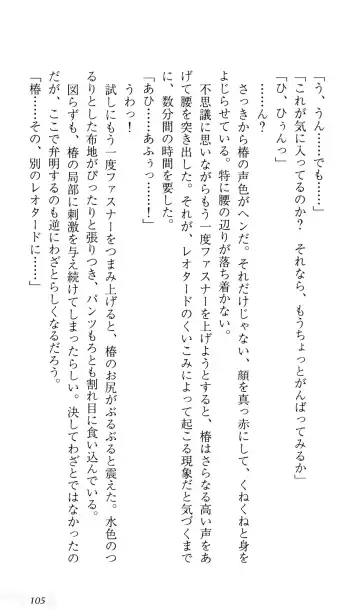 「う、うん……でも……」
「これが気に入ってるのか？　それなら、もうちょっとがんばってみるか」
「ひ、ひぅんっ」
……ん？
さっきから椿の声色がヘンだ。それだけじゃない、顔を真っ赤にして、くねくねと身を
よじらせている。特に腰の辺りが落ち着かない。
不思議に思いながらもう一度ファスナーを上げようとすると、椿はさらなる高い声をあ
げて腰を突き出した。それが、レオタードのくいこみによって起こる現象だと気づくまで
に、数分間の時間を要した。
「あひ……あふぅっ……！」
うわっ！
試しにもう一度ファスナーをつまみ上げると、椿のお尻がぶるぶると震えた。水色のつ
るりとした布地がぴったりと張りつき、パンツもろとも割れ目に食い込んでいる。
図らずも、椿の局部に刺激を与え続けてしまったらしい。決してわざとではなかったの
だが、ここで弁明するのも逆にわざとらしくなるだろう。
「椿……その、別のレオタードに……」
105